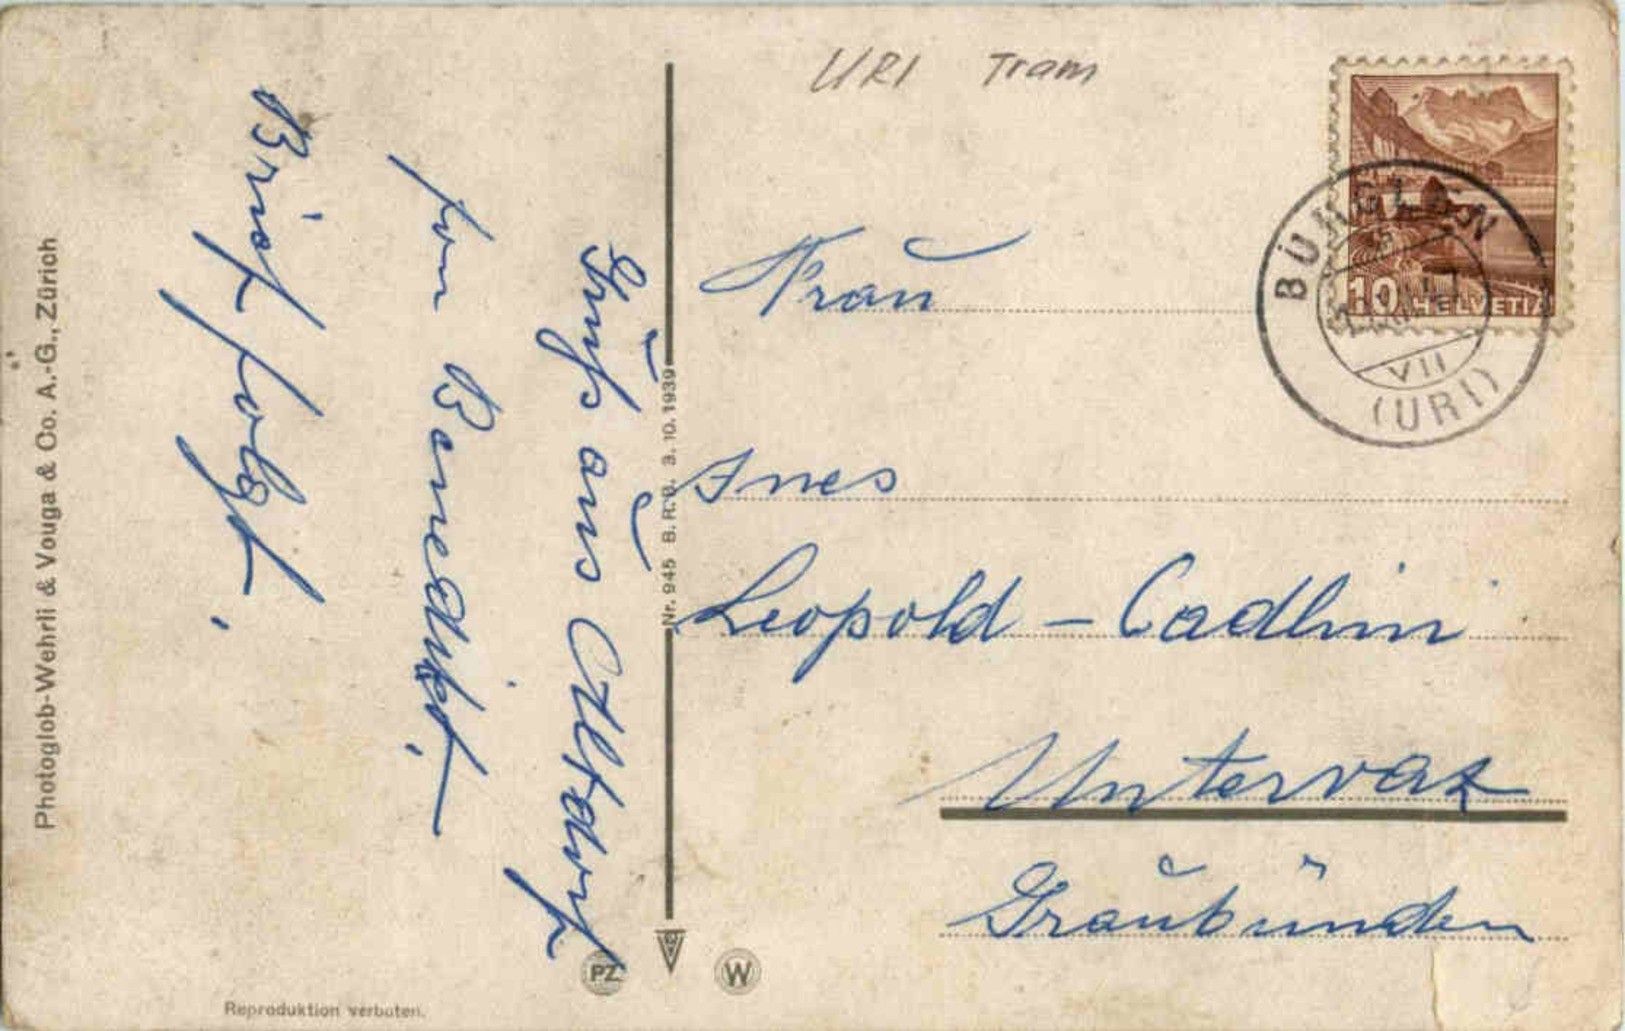 URI Tram
10 HELVETIA
BÜRGLEN
VII
(URI)
Gruß aus Altdorf
von Benedikt.
Brief folgt.
Frau
Ines
Leopold - Cadlini
Untervaz
Graubünden
Nr. 945 B. R. B. 3. 10. 1939
Photoglob-Wehrli & Vouga & Co. A.-G., Zürich
PZ
W
Reproduktion verboten.